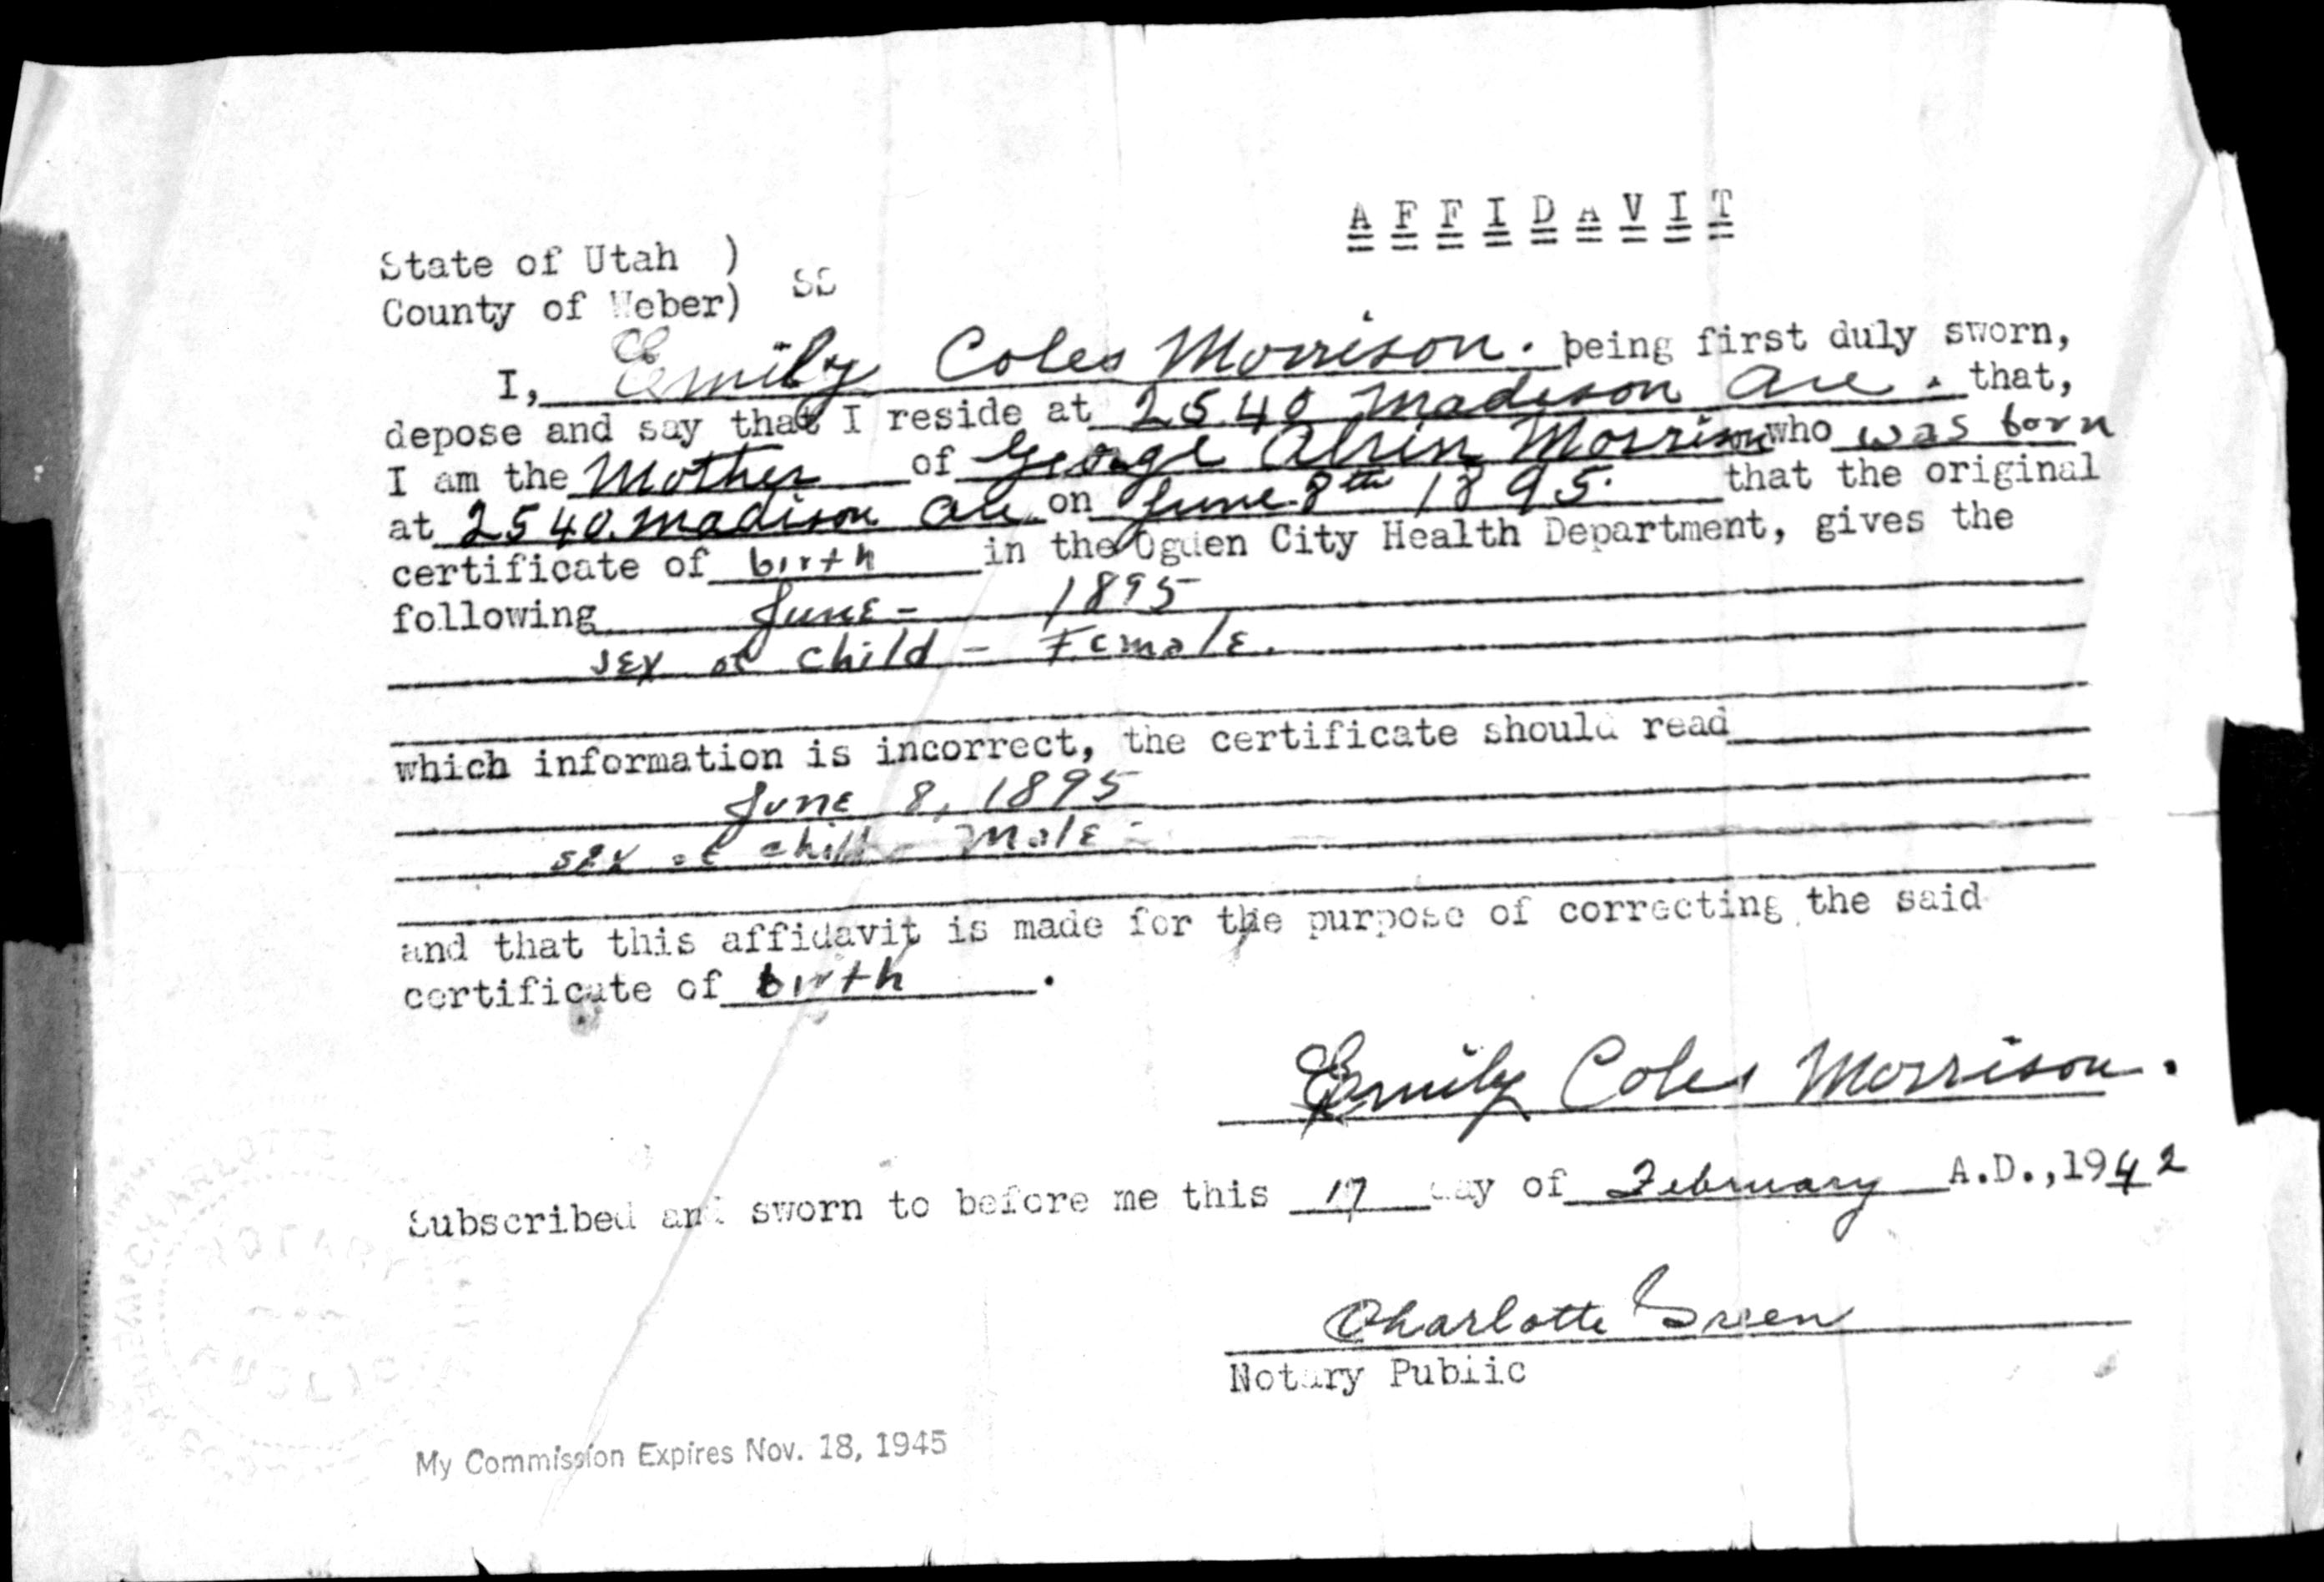 AFFIDAVIT
State of Utah )
County of Weber) SS
I, Emily Coles Morrison. being first duly sworn,
depose and say that I reside at 2540 Madison Ave. that,
I am the Mother of George Morrison who was born
at 2540. Madison Ave. on June 8th 1895. that the original
certificate of birth in the Ogden City Health Department, gives the
following June - 1895
sex of child - Female.
which information is incorrect, the certificate should read
June 8, 1895
sex of child - Male -
and that this affidavit is made for the purpose of correcting the said
certificate of birth.
Emily Coles Morrison.
Subscribed and sworn to before me this 17 day of February A.D., 1942
Charlotte Green
Notary Public
My Commission Expires Nov. 18, 1945